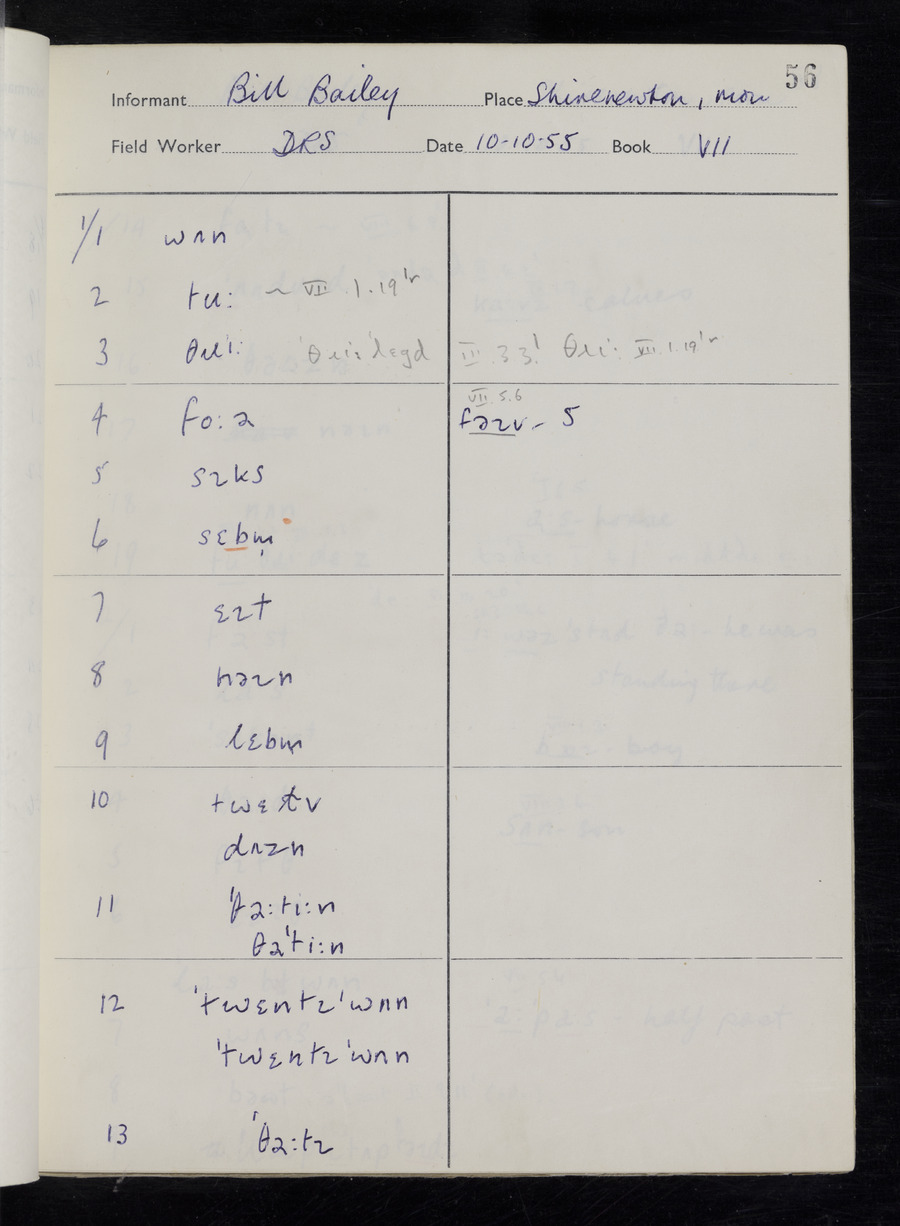 56
Informant Bill Bailey Place Shirenewton, Mon
Field Worker DRS Date 10-10-55 Book VII
1/1 wʌn
2 tu: ~ VII.1.19
3 θɹi: 'θɹi:'lɛgd III.33! θɹi: VII.1.19
VII.5.6
4 fo:ə fəɪv - 5
5 sɪks
6 sɛbm̩
7 ɛɪt
8 nəɪn
9 lɛbm̩
10 twɛɫv
dʌzn
11 'θə:ti:n
θə'ti:n
12 'twɛntɪ'wʌn
'twɛntɪ'wʌn
13 'θə:tɪ